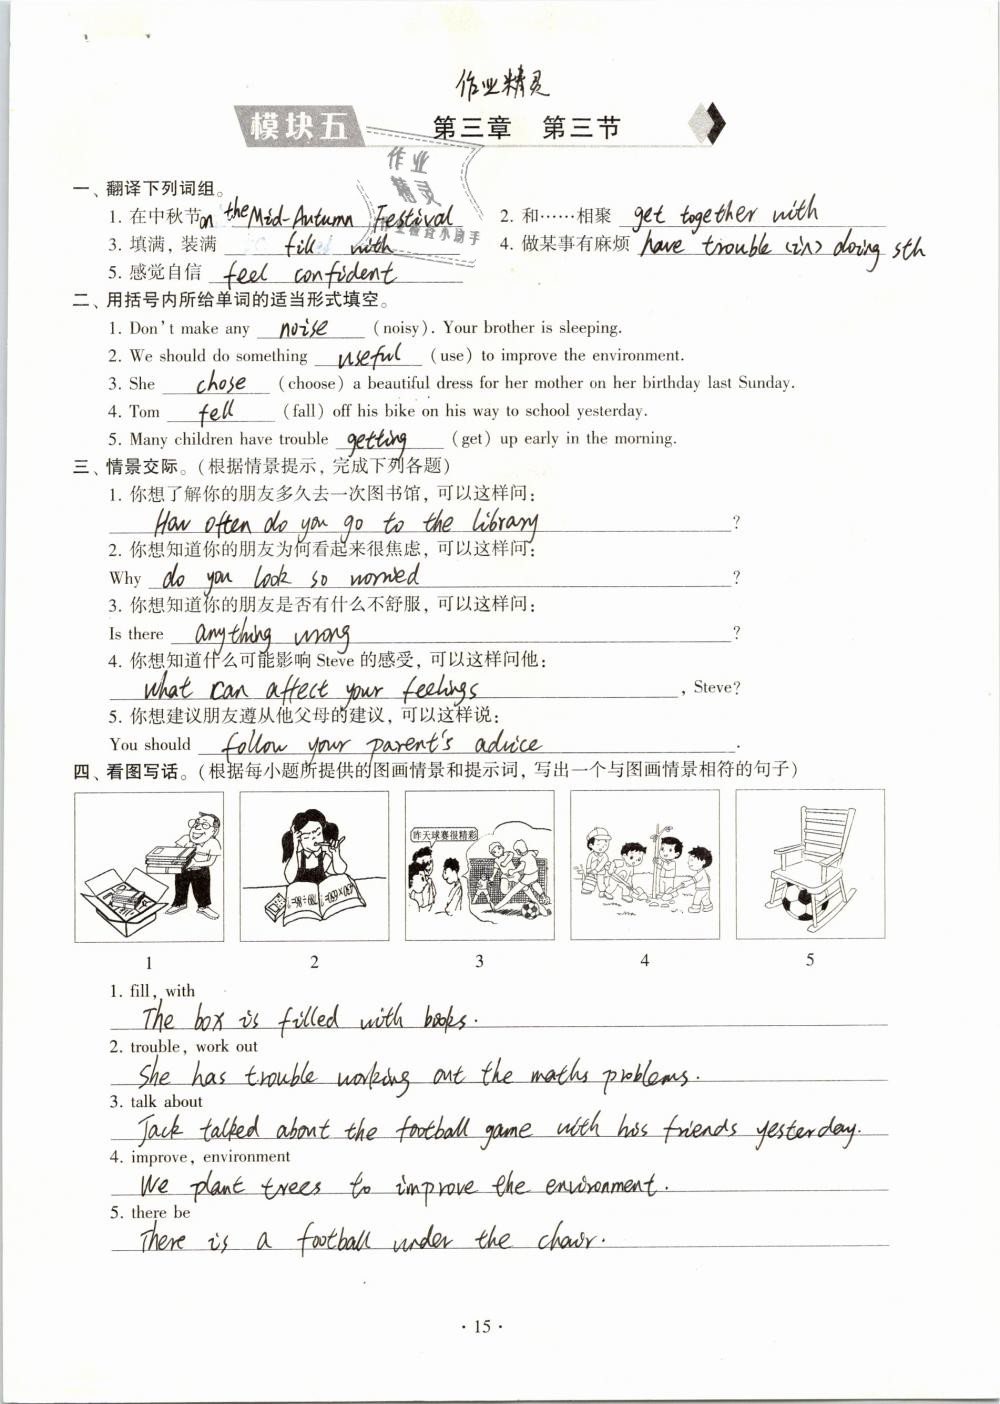 作业精灵
模块五 第三章 第三节
作业
精灵
一、翻译下列词组。
1. 在中秋节 on the Mid-Autumn Festival 2. 和……相聚 get together with
3. 填满，装满 fill with 4. 做某事有麻烦 have trouble (in) doing sth
5. 感觉自信 feel confident
二、用括号内所给单词的适当形式填空。
1. Don't make any noise (noisy). Your brother is sleeping.
2. We should do something useful (use) to improve the environment.
3. She chose (choose) a beautiful dress for her mother on her birthday last Sunday.
4. Tom fell (fall) off his bike on his way to school yesterday.
5. Many children have trouble getting (get) up early in the morning.
三、情景交际。(根据情景提示，完成下列各题)
1. 你想了解你的朋友多久去一次图书馆，可以这样问：
How often do you go to the library?
2. 你想知道你的朋友为何看起来很焦虑，可以这样问：
Why do you look so worried?
3. 你想知道你的朋友是否有什么不舒服，可以这样问：
Is there anything wrong?
4. 你想知道什么可能影响 Steve 的感受，可以这样问他：
What can affect your feelings, Steve?
5. 你想建议朋友遵从他父母的建议，可以这样说：
You should follow your parent's advice.
四、看图写话。(根据每小题所提供的图画情景和提示词，写出一个与图画情景相符的句子)
昨天球赛很精彩
1 2 3 4 5
1. fill, with
The box is filled with books.
2. trouble, work out
She has trouble working out the maths problems.
3. talk about
Jack talked about the football game with his friends yesterday.
4. improve, environment
We plant trees to improve the environment.
5. there be
There is a football under the chair.
· 15 ·